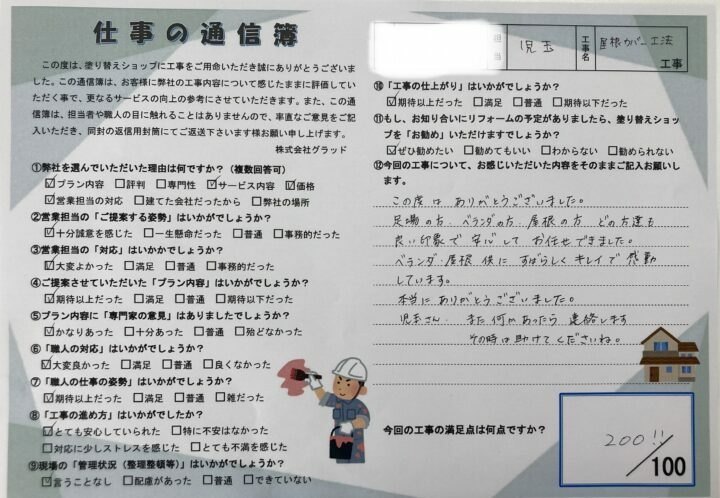 仕事の通信簿
この度は、塗り替えショップに工事をご用命いただき誠にありがとうございまし
た。この通信簿は、お客様に弊社の工事内容について感じたままに評価してい
ただく事で、更なるサービスの向上の参考にさせていただきます。また、この通信
簿は、担当者や職人の目に触れることはありませんので、率直なご意見をご記
入いただき、同封の返信用封筒にてご返送下さいます様お願い申し上げます。
株式会社グラッド
①弊社を選んでいただいた理由は何ですか？（複数回答可）
☑プラン内容 □評判 □専門性 ☑サービス内容 ☑価格
☑営業担当の対応 □建てた会社だったから □弊社の場所
②営業担当の「ご提案する姿勢」はいかがでしょうか？
☑十分誠意を感じた □一生懸命だった □普通 □事務的だった
③営業担当の「対応」はいかかでしょうか？
☑大変よかった □満足 □普通 □事務的だった
④ご提案させていただいた「プラン内容」はいかがでしょうか？
☑期待以上だった □満足 □普通 □期待以下だった
⑤プラン内容に「専門家の意見」はありましたでしょうか？
☑かなりあった □十分あった □普通 □殆どなかった
⑥「職人の対応」はいかがでしょうか？
☑大変良かった □満足 □普通 □良くなかった
⑦「職人の仕事の姿勢」はいかがでしょうか？
☑期待以上だった □満足した □普通 □雑だった
⑧「工事の進め方」はいかがでしたか？
☑とても安心していられた □特に不安はなかった
□対応に少しストレスを感じた □とても不満を感じた
⑨現場の「管理状況（整理整頓等）」はいかがでしょうか？
☑言うことなし □配慮があった □普通 □できていない
担当 児玉 工事名 屋根カバー工法 工事
⑩「工事の仕上がり」はいかがでしょうか？
☑期待以上だった □満足 □普通 □期待以下だった
⑪もし、お知り合いにリフォームの予定がありましたら、塗り替えショッ
プを「お勧め」いただけますでしょうか？
☑ぜひ勧めたい □勧めてもいい □わからない □勧められない
⑫今回の工事について、お感じいただいた内容をそのままご記入お願いし
ます。
この度は ありがとうございました。
足場の方・ベランダの方・屋根の方 どの方達も
良い印象で 安心して お任せできました。
ベランダ・屋根 供に すばらしく キレイで 感動
しています。
本当に ありがとうございました。
児玉さん また何かあったら 連絡します
その時は助けてくださいね。
今回の工事の満足点は何点ですか？
200!!/100